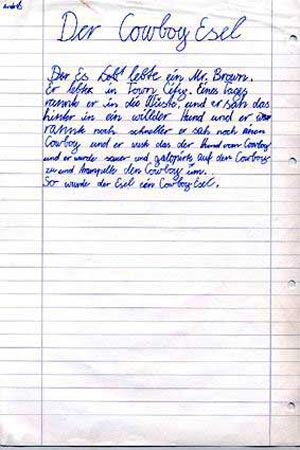 Der Cowboy Esel
Der Es lebte ein Mr. Brown.
Er lebte in Town City. Eines Tages
rannte er in die Wüste, und er sah das
hinter in ein wilder Hund und er
rannte noch schneller er sah noch einen
Cowboy und er sah das der Hund vom Cowboy
und er wurde sauer und galopirte auf den Cowboy
zu und trampelte den Cowboy um.
So wurde der Esel ein Cowboy Esel.